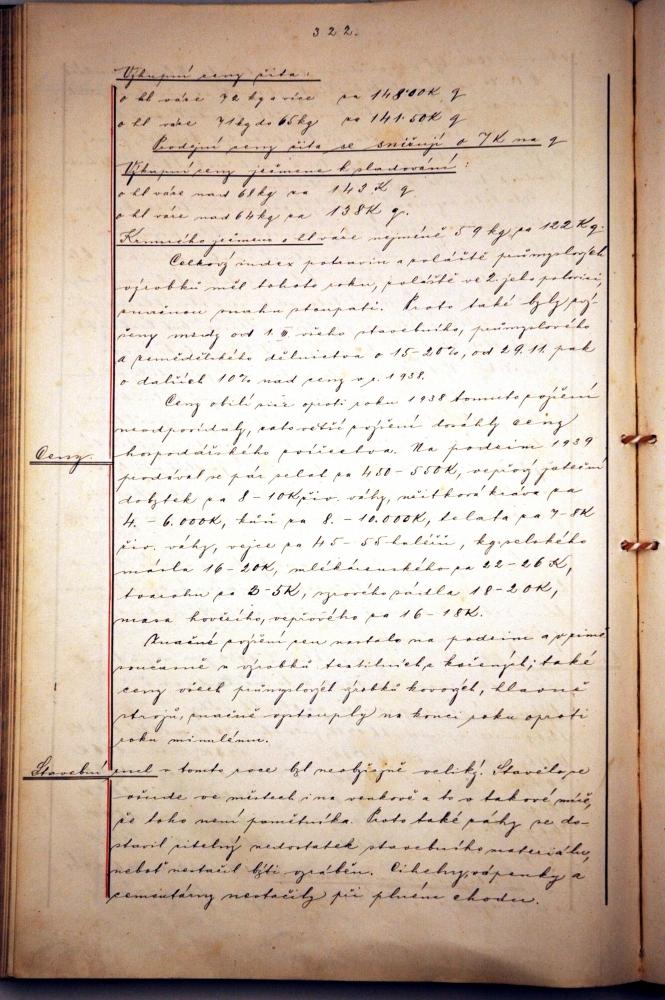 322.
Výkupní ceny žita:
o hl váze 72 kg a více za 148.00K q
o hl váze 71kg do 65kg za 141.50K q
Prodejní ceny žita se snižují o 7K na q
Výkupní ceny ječmene k sladování:
o hl váze nad 68kg za 143K q
o hl váze nad 64kg za 138K q.
Krmného ječmene o hl váze nejméně 59 kg za 122Kq.
Celkový index potravin a zvláště průmyslových
výrobků měl tohoto roku, zvláště ve 2. jeho polovici,
značnou snahu stoupati. Proto také byly zvý-
šeny mzdy od 1. všeho stavebního, průmyslového
a zemědělského dělnictva o 15-20%, od 29.11. pak
o dalších 10% nad ceny v r. 1938.
Ceny obilí sice oproti roku 1938 tomuto zvýšení
neodpovídaly, zato větší zvýšení dosáhly ceny
Ceny.
hospodářského zvířectva. Na podzim 1939
prodával se pár selat za 450-550K, vepřový jateční
dobytek za 8-10K živ. váhy, užitková kráva za
4.-6.000K, kůň za 8.-10.000K, telata za 7-8K
živ. váhy, vejce za 45-55 haléřů, kg selského
másla 16-20K, mlékárenského za 22-26K,
tvarohu za 3-5K, syrového sádla 18-20K,
masa hovězího, vepřového za 16-18K.
Značné zvýšení cen nastalo na podzim a v zimě
současně u výrobků textilních, kožených; také
ceny všech průmyslových výrobků kovových, hlavně
strojů, značně vystouply na konci roku oproti
roku minulému.
Stavební ruch v tomto roce byl neobyčejně veliký. Stavělo se
všude ve městech i na venkově a to v takové míře,
že toho není pamětníka. Proto také záhy se do-
stavil citelný nedostatek stavebního materiálu,
neboť nestačil býti vyráběn. Cihelny, vápenky a
cementárny nestačily při plném chodu.